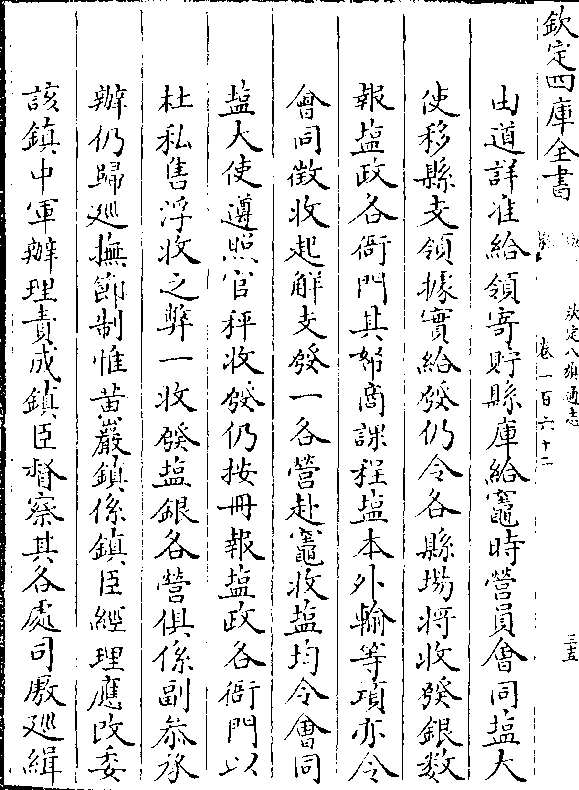 欽定四庫全書
欽定八旗通志
卷一百六十二
三五
由道詳准給領寄貯縣庫給竈時營員會同塩大
使移縣支領據實給發仍令各縣場將收發銀數
報塩政各衙門其婦商課程塩本外輸等項亦令
會同徴收起解支發一各營赴竈收塩均令會同
塩大使遵照官秤收發仍按冊報塩政各衙門以
杜私售浮收之弊一收發塩銀各營俱係副叅承
辦仍歸廵撫節制惟黄巖鎮係鎮臣經理應改委
該鎮中軍辦理責成鎮臣督察其各處司厫廵緝